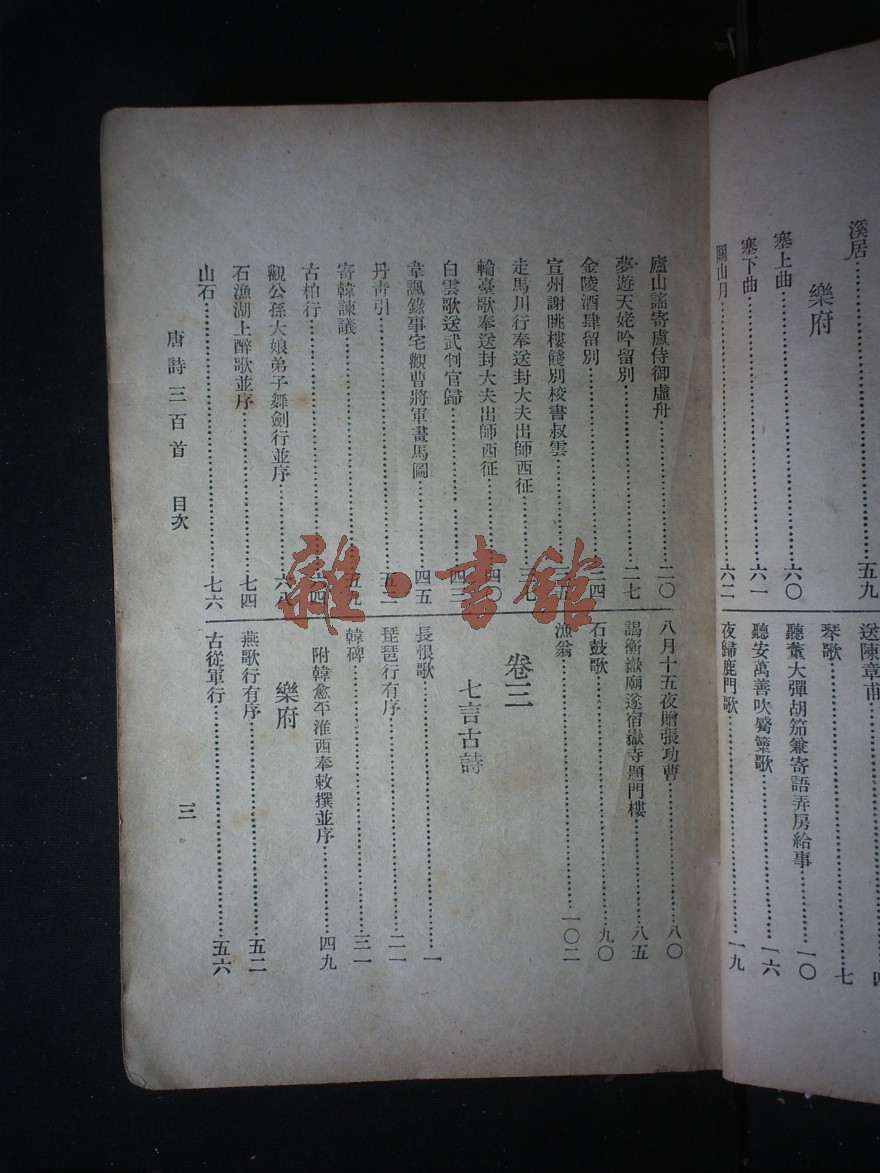 溪居……五九
樂府
塞上曲……六〇
塞下曲……六一
關山月……六二
送陳章甫……四
琴歌……七
聽董大彈胡笳兼寄語弄房給事……一〇
聽安萬善吹觱篥歌……一六
夜歸鹿門歌……一九
廬山謠寄盧侍御虛舟……二〇
夢遊天姥吟留別……二七
金陵酒肆留別……三四
宣州謝朓樓餞別校書叔雲……三五
走馬川行奉送封大夫出師西征……三七
輪臺歌奉送封大夫出師西征……四〇
白雲歌送武判官歸……四三
韋諷錄事宅觀曹將軍畫馬圖……四五
丹青引……五二
寄韓諫議……五九
古柏行……六四
觀公孫大娘弟子舞劍行並序……六八
石漁湖上醉歌並序……七四
山石……七六
八月十五夜贈張功曹……八〇
謁衡嶽廟遂宿嶽寺題門樓……八五
石鼓歌……九〇
漁翁……一〇二
卷三
七言古詩
長恨歌……一
琵琶行有序……二一
韓碑……三一
附韓愈平淮西奉敕撰並序……四九
樂府
燕歌行有序……五二
古從軍行……五六
唐詩三百首 目次
三
雜·書館